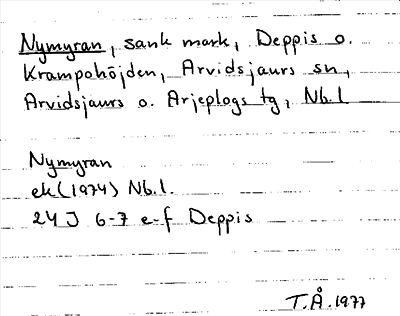 Nymyran, sank mark, Deppis o.
Krampohöjden, Arvidsjaurs sn,
Arvidsjaurs o. Arjeplogs tg, Nb.l
Nymyran
ek (1974) Nb.l.
24 J 6-7 e-f Deppis
T.Å. 1977